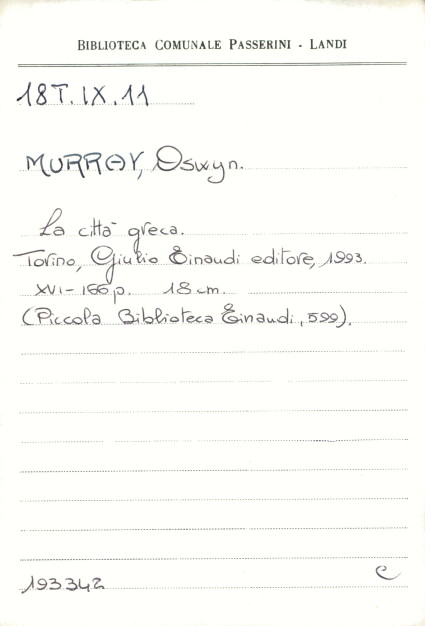 BIBLIOTECA COMUNALE PASSERINI - LANDI
18T.IX.11
MURRAY, Oswyn.
La città greca.
Torino, Giulio Einaudi editore, 1993.
XVI-166p. 18 cm.
(Piccola Biblioteca Einaudi, 599).
193342
C